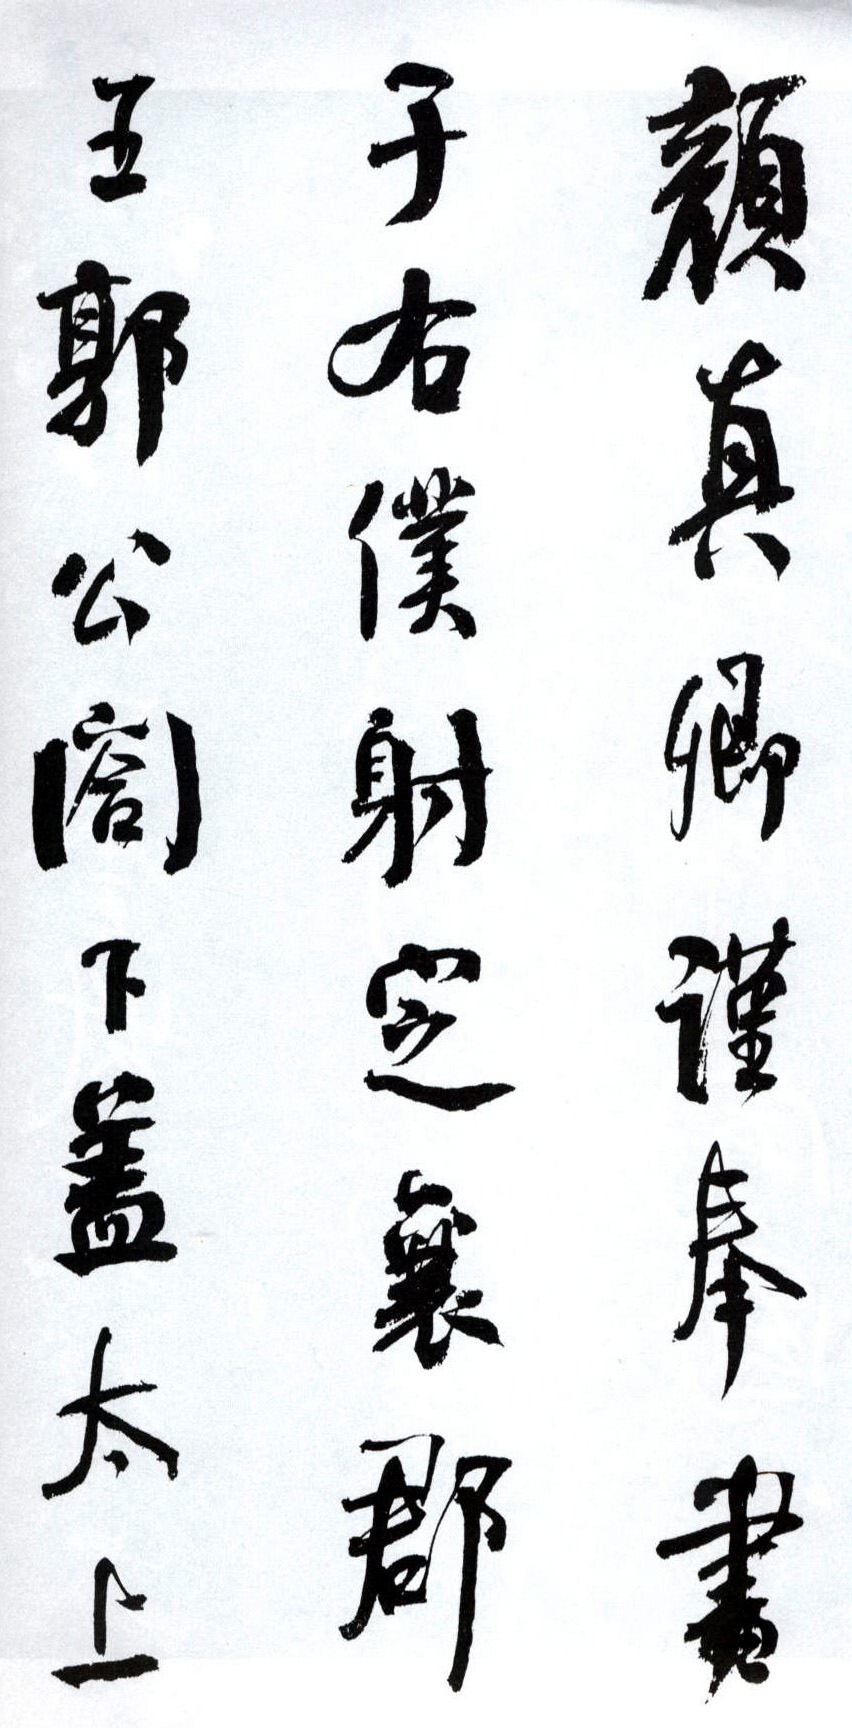 顏真卿謹奉書
于右僕射定襄郡
王郭公閤下蓋太上